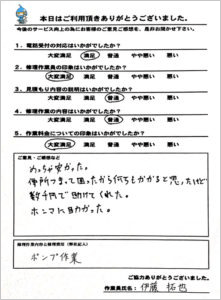 本日はご利用頂きありがとうございました。
今後のサービス向上の為にお客様のご意見ご感想を、是非お聞かせ下さい。
1. 電話受付の対応はいかがでしたか?
大変満足 満足 普通 やや悪い 悪い
2. 修理作業員の印象はいかがでしたか?
大変満足 満足 普通 やや悪い 悪い
3. 見積もり内容の説明はいかがでしたか?
大変満足 満足 普通 やや悪い 悪い
4. 修理作業の内容はいかがでしたか?
大変満足 満足 普通 やや悪い 悪い
5. 作業料金についての印象はいかがでしたか?
大変満足 満足 普通 やや悪い 悪い
ご意見・ご感想など
めっちゃ安かった。
便所つまって困ったから何千もかかると思ったけど
数千円で助けてくれた。
ホンマに助かった。
ポンプ作業
ご協力ありがとうございました。
作業員氏名: 伊藤 拓也